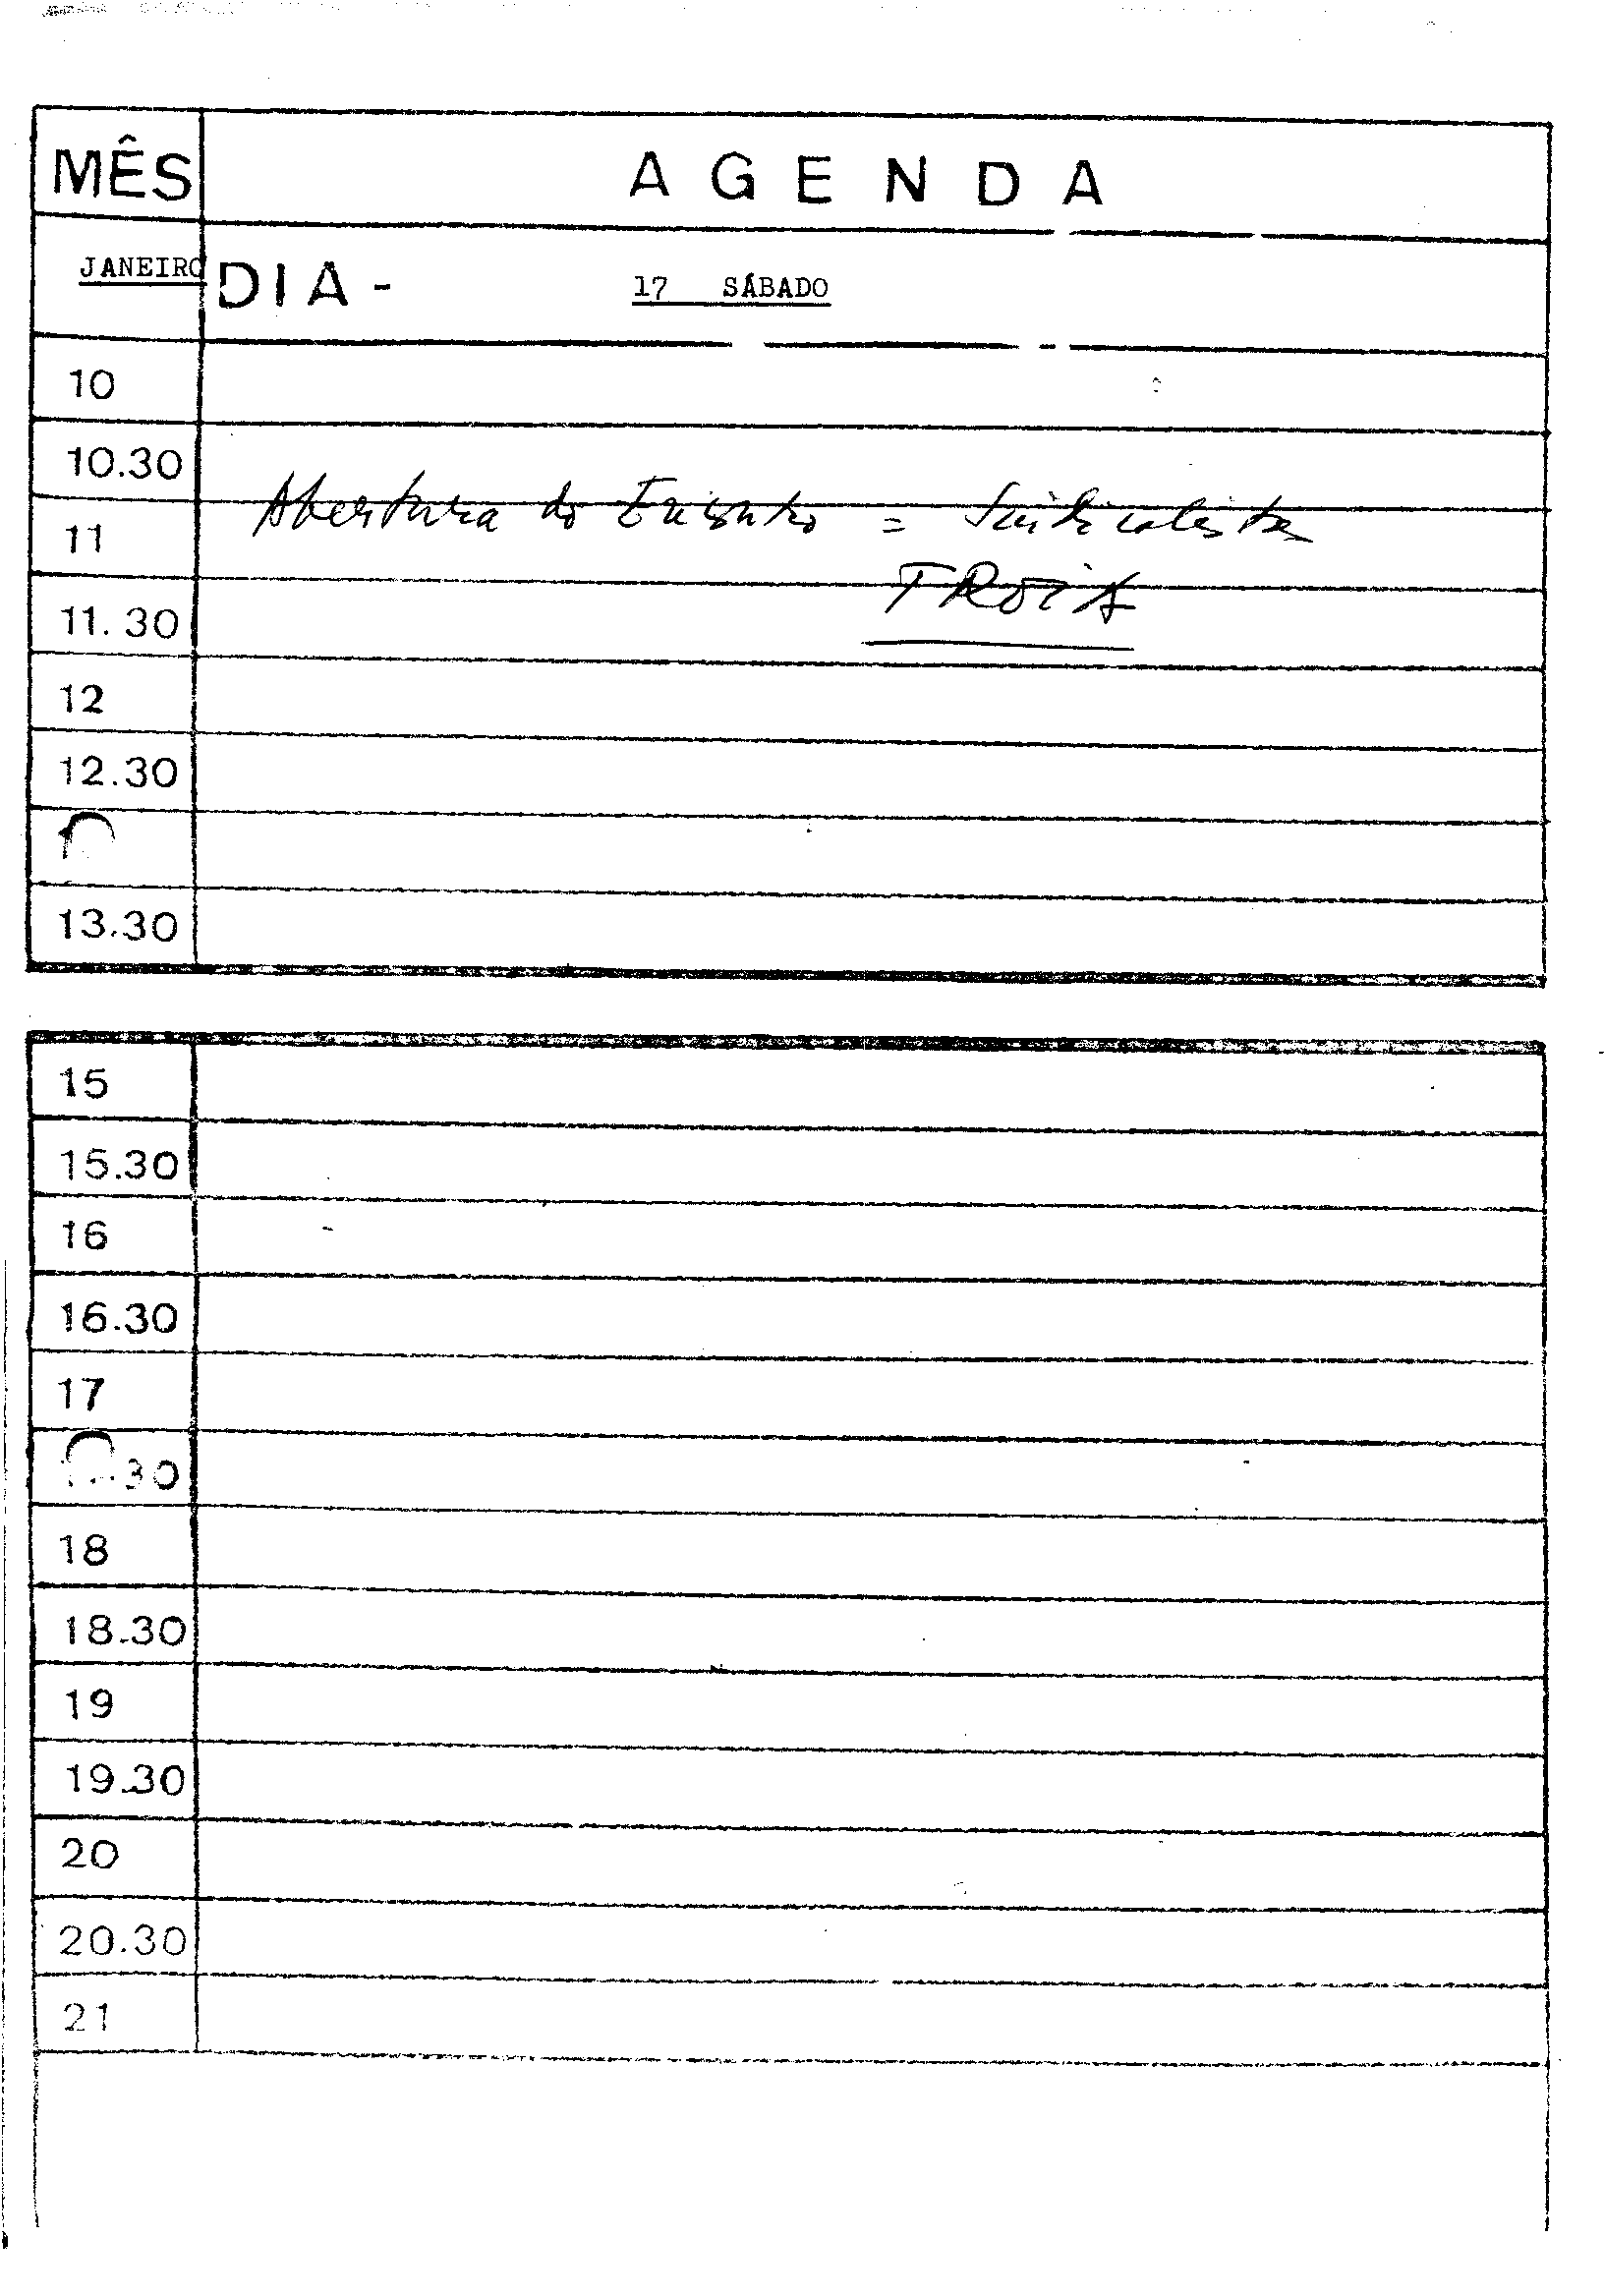 MÊS
A G E N D A
JANEIRO
DIA - 17 SÁBADO
10
10.30
Abertura do Encontro = Sindicalista
11
TROIA
11.30
12
12.30
1
13.30
15
15.30
16
16.30
17
30
18
18.30
19
19.30
20
20.30
21